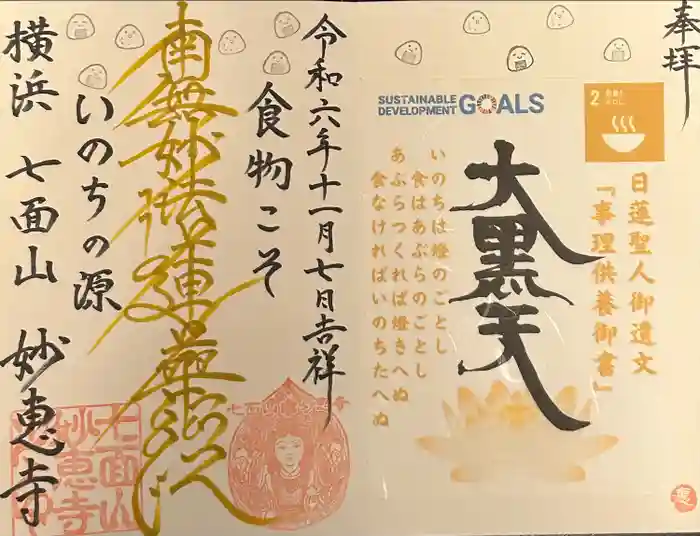 奉拝
2 飢餓を
ゼロに
SUSTAINABLE
DEVELOPMENT
GOALS
日蓮聖人御遺文
「事理供養御書」
大黒天
いのちは燈のごとし
食はあぶらのごとし
あぶらつくれば燈きへぬ
食なければいのちたへぬ
令和六年十一月七日吉祥
食物こそ
南無妙法蓮華経
いのちの源
横浜 七面山 妙恵寺
七面山
妙恵寺